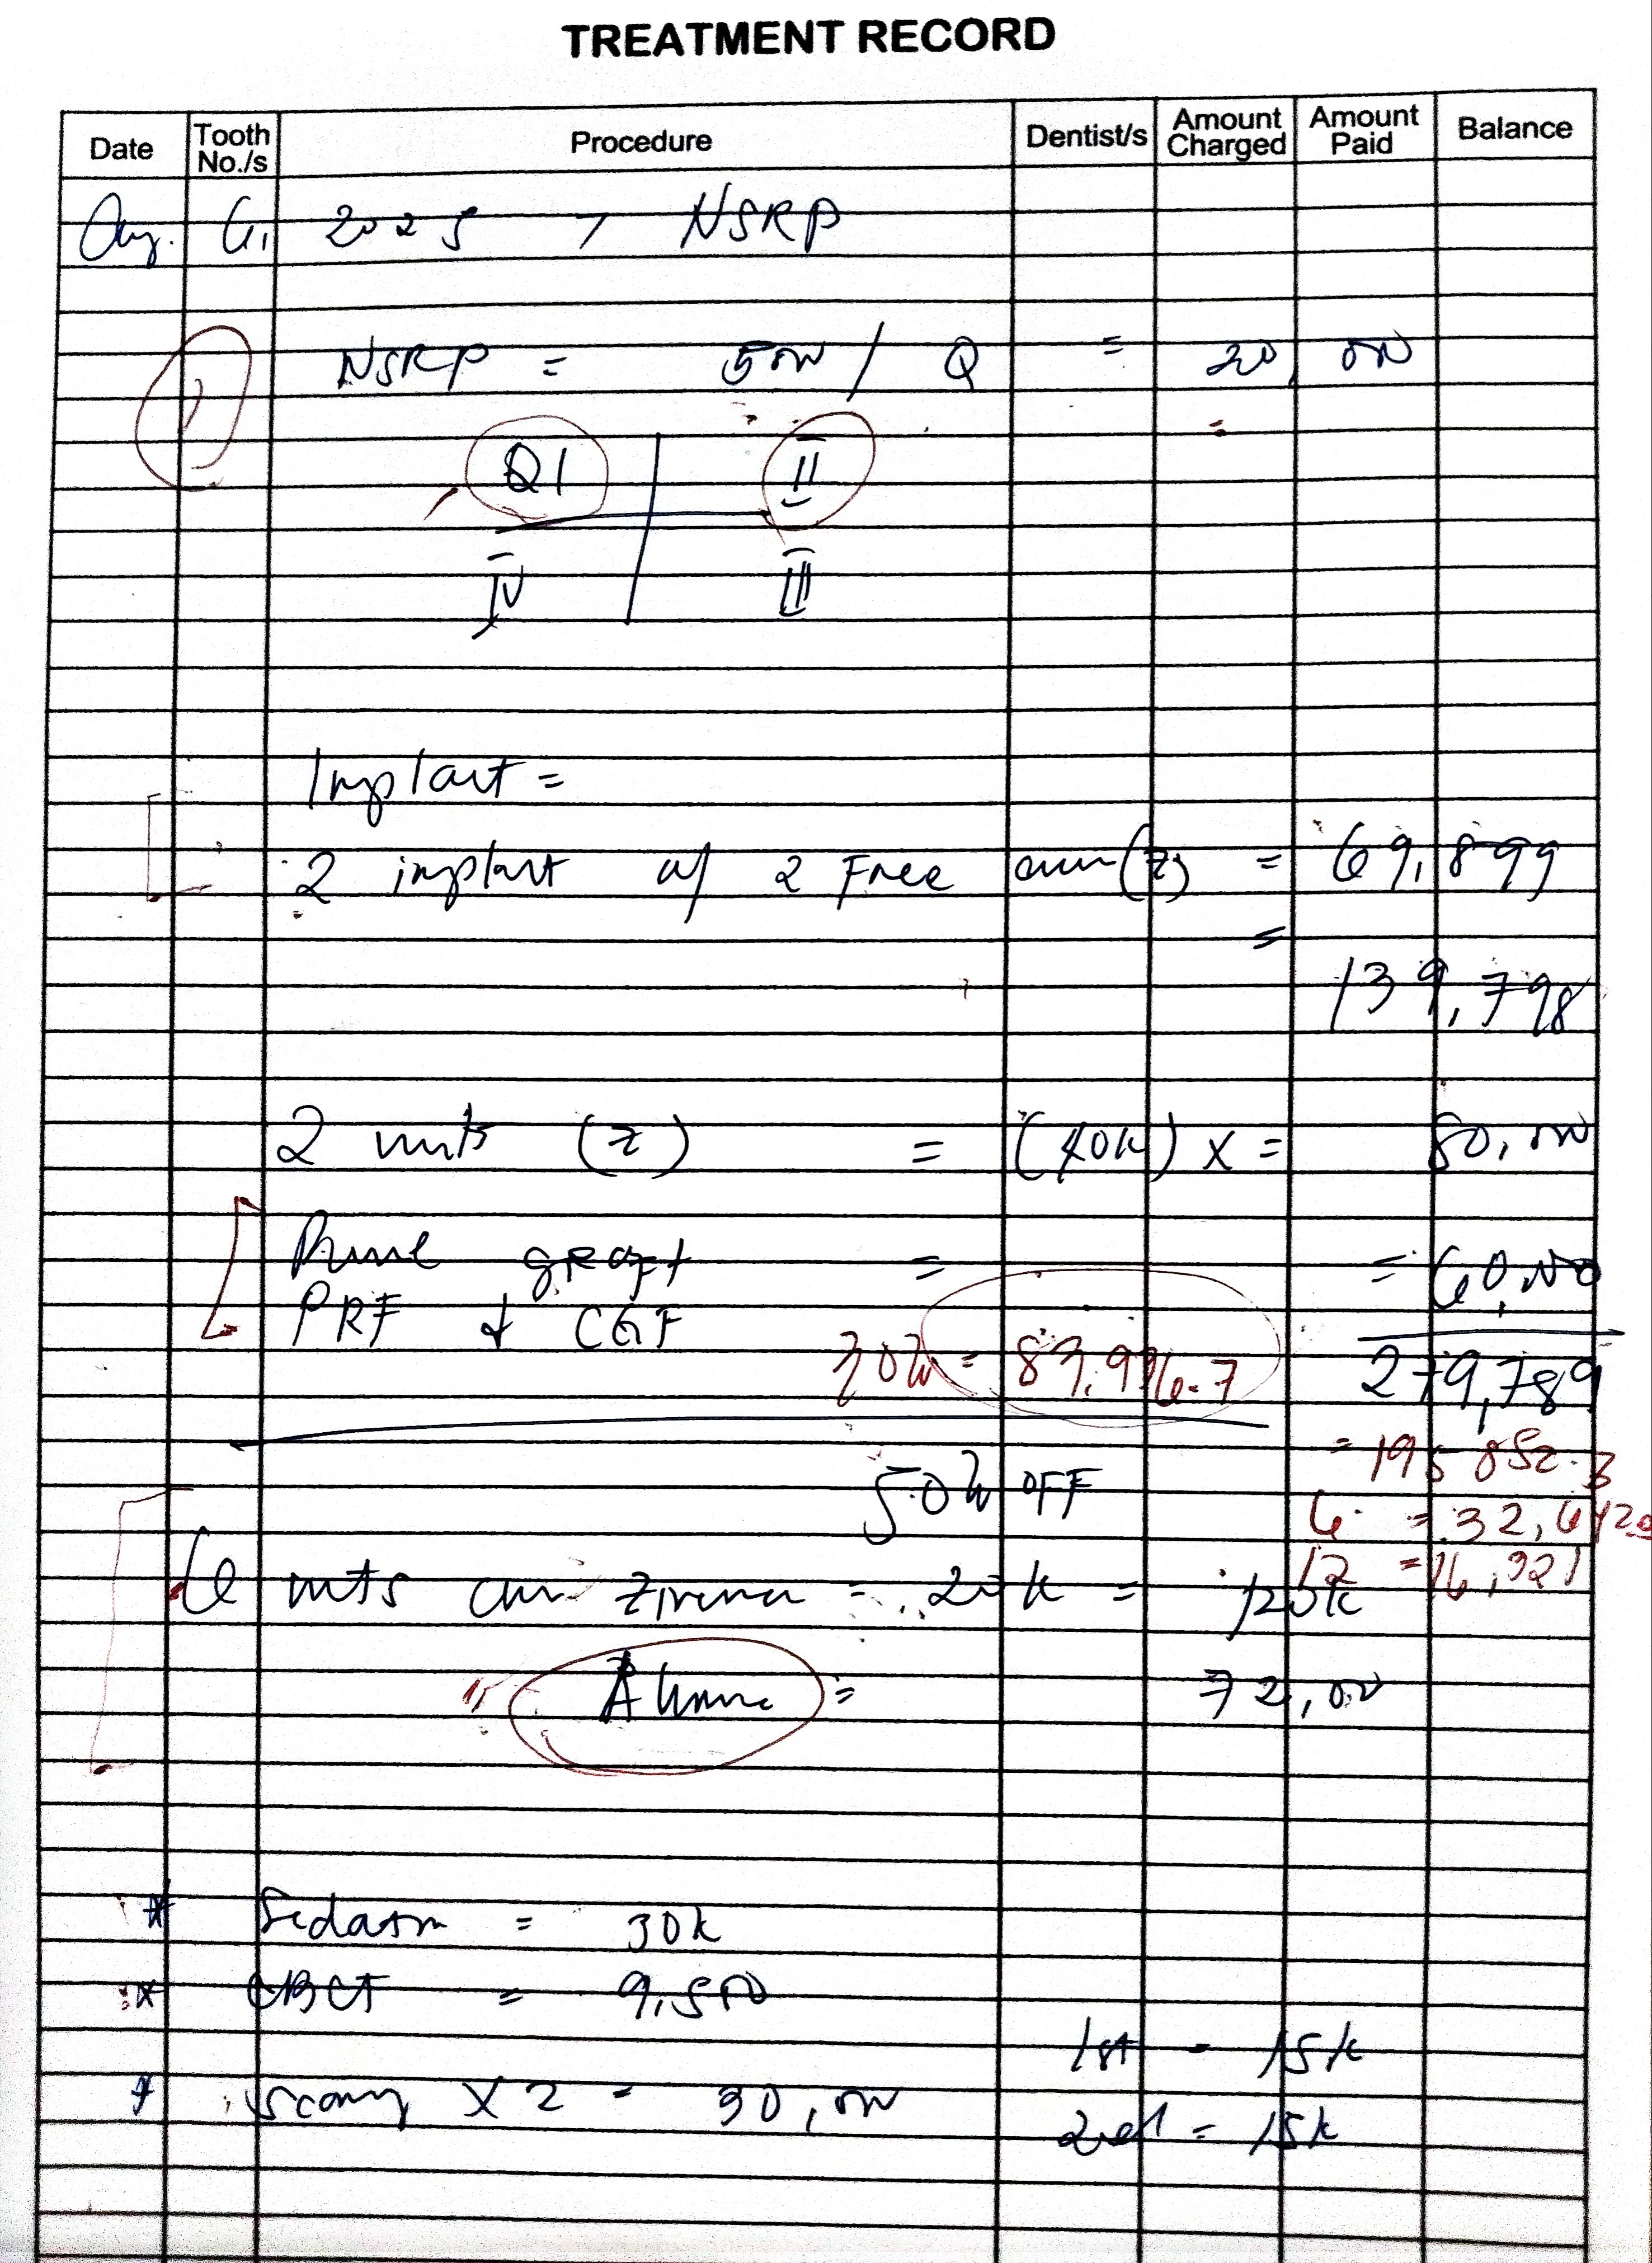 TREATMENT RECORD
Date Tooth No./s Procedure Dentist/s Amount Charged Amount Paid Balance
Aug. 6, 2025 , NSRP
1
NSRP = 500 / Q = 20,000
Q1 II
IV III
Implant =
2 implant w/ 2 Free (z) = 69,899
=
139,798
2 units (z) = (40k) x = 80,000
graft = = 60,000
PRF & CGF
30% = 83,936.7 279,789
= 195 852.3
50% OFF
6 = 32,642
12 = 16,321
6 = 20k = 120k
= 72,000
* Sedation = 30k
* CBCT = 9,500
1st - 15k
* x 2 = 30,000
2nd = 15k